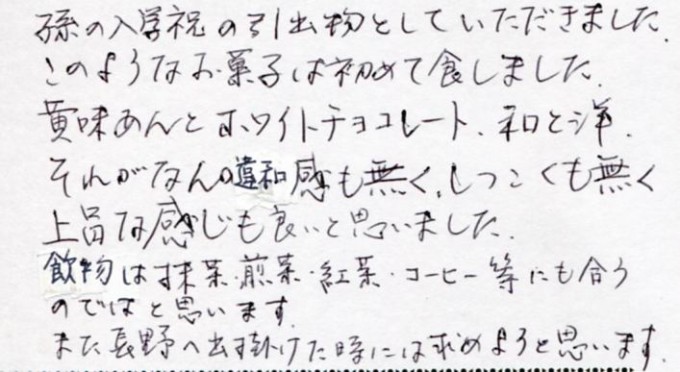 孫の入学祝の引出物としていただきました。
このようなお菓子は初めて食しました。
黄味あんとホワイトチョコレート、和と洋、
それがなんの違和感も無く、しつこくも無く
上品な感じも良いと思いました。
飲物は抹茶・煎茶・紅茶・コーヒー等にも合う
のではと思います。
また長野へ出掛けた時には求めようと思います。